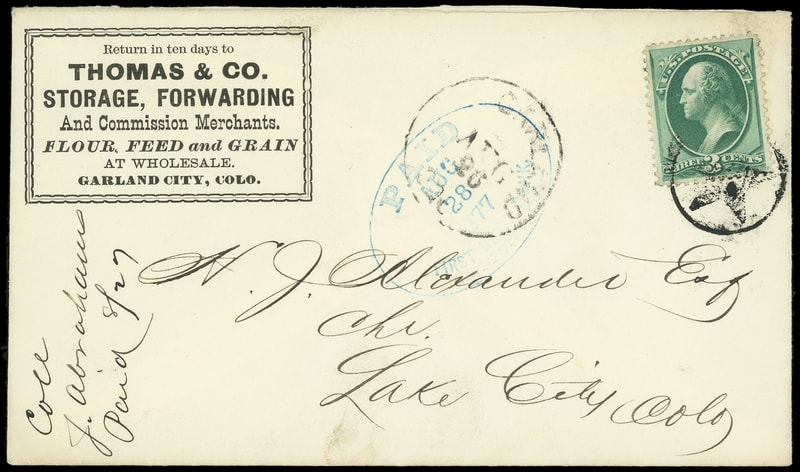 Return in ten days to
THOMAS & CO.
STORAGE, FORWARDING
And Commission Merchants.
FLOUR, FEED and GRAIN
AT WHOLESALE.
GARLAND CITY, COLO.
U.S. POSTAGE
THREE 3 CENTS
GARLAND
AUG
26
PAID
AUG
28
77
N. J. Alexander Esq
Lake City Colo
Coll
J. Abrahams
Paid 8/27